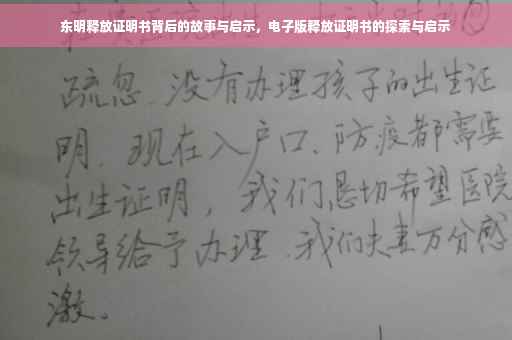 东明释放证明书背后的故事与启示，电子版释放证明书的探索与启示
疏忽、没有办理孩子的出生证
明、现在入户口、防疫都需要
出生证明，我们恳切希望医院
领导给予办理、我们夫妻万分感
激。